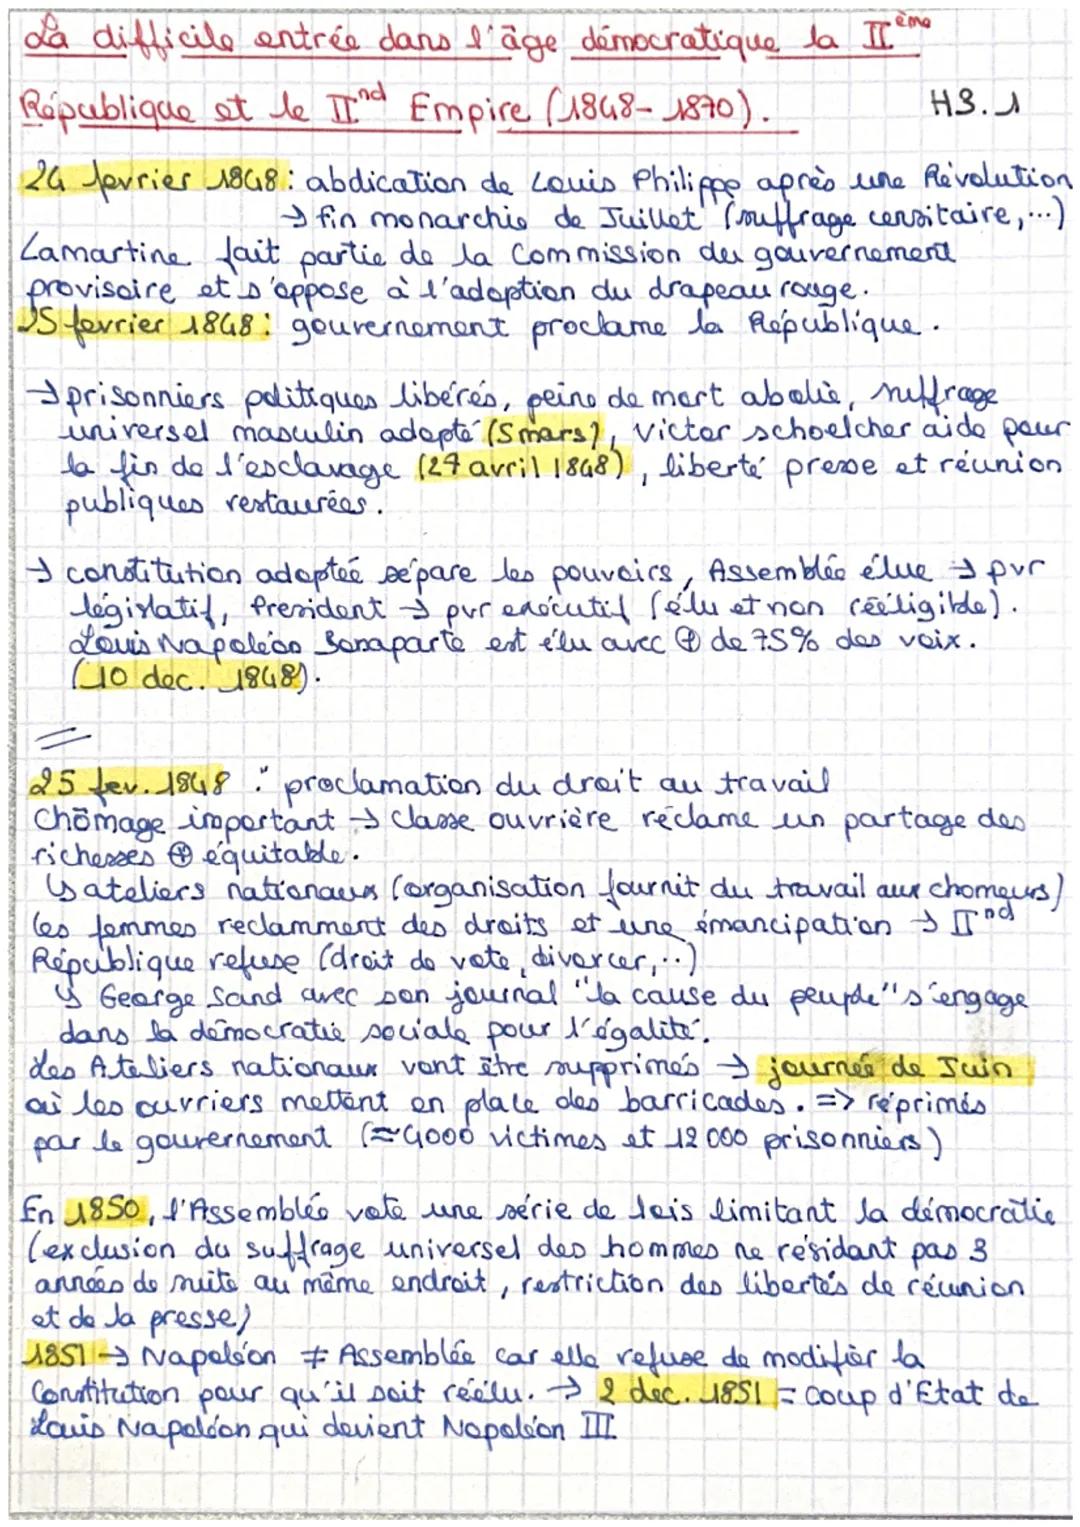 La difficile entrée dans l'âge démocratique la IIème
République et le IInd Empire (1848-1870). H3.1
24 fevrier 1848 : abdication de Louis Philippe après une Révolution
→ fin monarchie de Juillet (suffrage censitaire, ...)
Lamartine fait partie de la Commission du gouvernement
provisoire et s'oppose à l'adoption du drapeau rouge.
25 fevrier 1848 : gouvernement proclame la République.
→ prisonniers politiques libérés, peine de mort abolie, suffrage
universel masculin adopté (5 mars), Victor schoelcher aide pour
la fin de l'esclavage (27 avril 1848), liberté presse et réunion
publiques restaurées.
→ constitution adoptée sépare les pouvoirs, Assemblée élue → pvr
législatif, President → pvr exécutif (élu et non rééligible).
Louis Napoléon Bonaparte est élu avec ⊕ de 75% des voix.
(10 dec. 1848).
=
25 fev. 1848 : proclamation du droit au travail
Chômage important → classe ouvrière réclame un partage des
richesses ⊕ équitable.
↳ ateliers nationaux (organisation fournit du travail aux chomeurs)
les femmes reclamment des droits et une émancipation → IInd
République refuse (droit de vote, divorcer, ..)
↳ George Sand avec son journal "la cause du peuple" s'engage
dans la démocratie sociale pour l'égalité.
Les Ateliers nationaux vont être supprimés → journée de Juin
où les ouvriers mettent en place des barricades. => réprimés
par le gouvernement (≈4000 victimes et 12 000 prisonniers)
En 1850, l'Assemblée vote une série de lois limitant la démocratie
(exclusion du suffrage universel des hommes ne résidant pas 3
années de suite au même endroit, restriction des libertés de réunion
et de la presse)
1851 → Napoléon ≠ Assemblée car elle refuse de modifier la
Constitution pour qu'il soit réélu. → 2 dec. 1851 = coup d'Etat de
Louis Napoléon qui devient Napoléon III